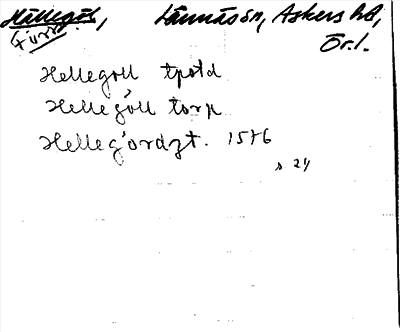 Hällegöl, Lännäs sn, Askers hd,
För. Ör. l.
Hellegöll tpotd
Hellegöll torp
Hellegördzt. 1576
s 24